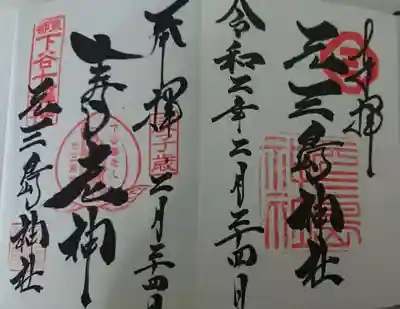 奉拝
元三島神社
令和二年二月二十四日
奉拝
子歳
二月二十四日
寿老神
下谷七
元三島神社